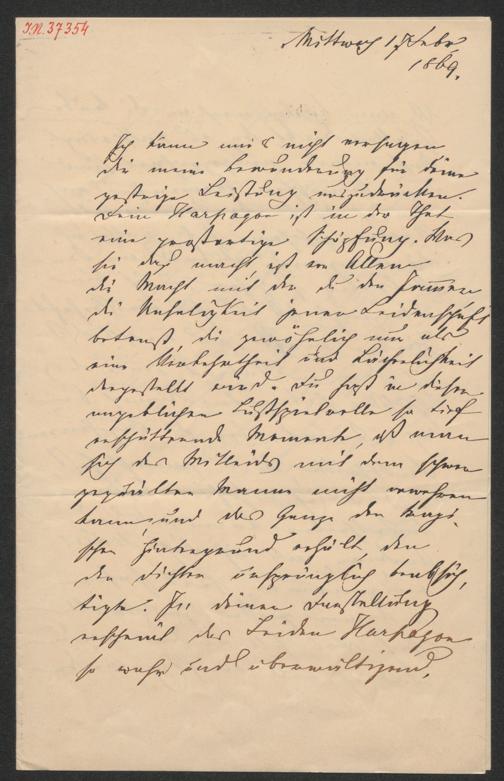 I.N. 37354
Mittwoch 17 Febr.
1869.
Ich kann mir's nicht versagen
dir meine Bewunderung für deine
gestrige Leistung auszudrücken.
Dein Harpagon ist in der That
eine großartige Schöpfung. Was
sie dazu macht, ist vor Allem
die Macht mit der du den Jammer
die Unseligkeit jener Leidenschaft
betonst, die gewöhnlich nur als
eine Verkehrtheit und Lächerlichkeit
dargestellt wird. Du hast in dieser
angeblichen Lustspielrolle so tief
erschütternde Momente, daß man
sich des Mitleids mit dem schwer
gequälten Manne nicht erwehren
kann, und das Ganze den tragi-
schen Hintergrund erhält, den
der Dichter ursprünglich beabsich-
tigte. In deiner Darstellung
erscheint das Leiden Harpagon
so wahr und überwältigend,